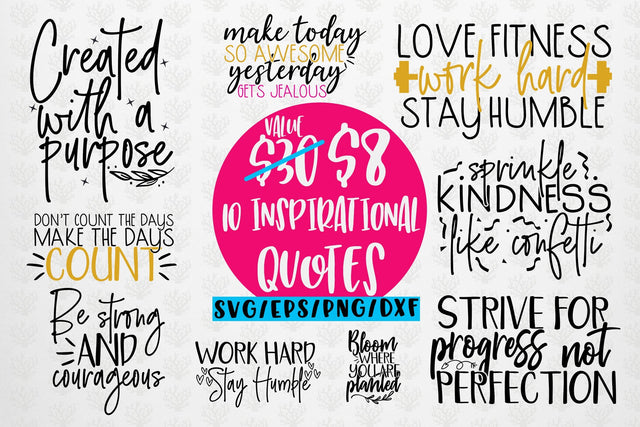 Created
with a
purpose
make today
SO AWESOME
yesterday
GETS JEALOUS
LOVE FITNESS
work hard
STAY HUMBLE
VALUE
$30 $8
10 INSPIRATIONAL
QUOTES
SVG/EPS/PNG/DXF
DON'T COUNT THE DAYS
MAKE THE DAYS
COUNT
sprinkle
KINDNESS
like confetti
Be strong
AND
courageous
WORK HARD
Stay Humble
Bloom
WHERE
YOU ARE
planted
STRIVE FOR
progress not
PERFECTION